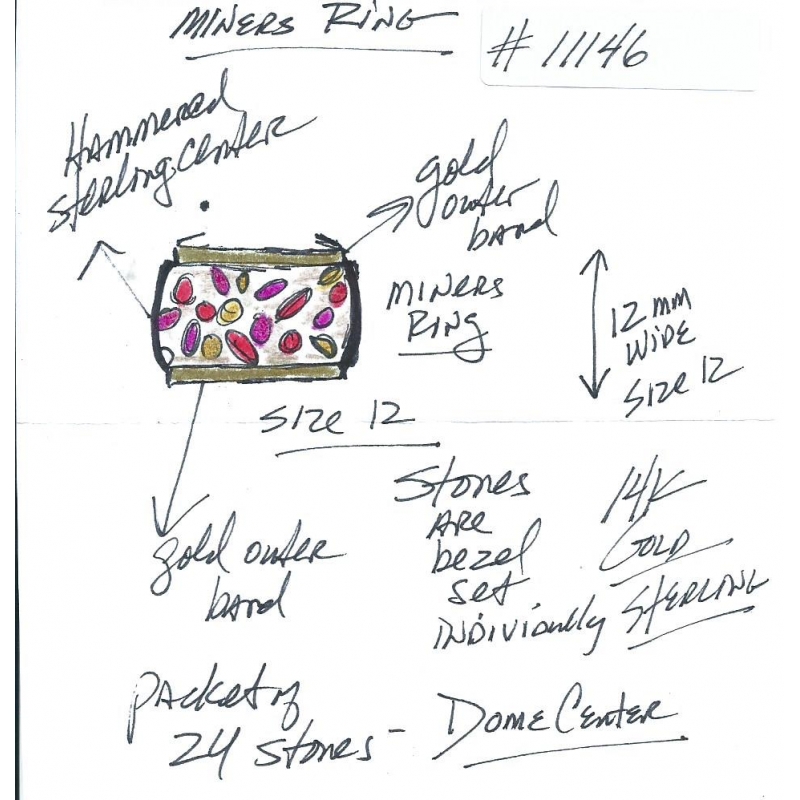 MINERS RING
# 11146
HAMMERED
sterling CENTER
gold
outer
band
MINERS
RING
12 mm
WIDE
SIZE 12
SIZE 12
gold outer
band
STONES
ARE
bezel
set
INDIVIDUALLY
14K
GOLD
STERLING
PACKET of
24 STONES -
DOME CENTER